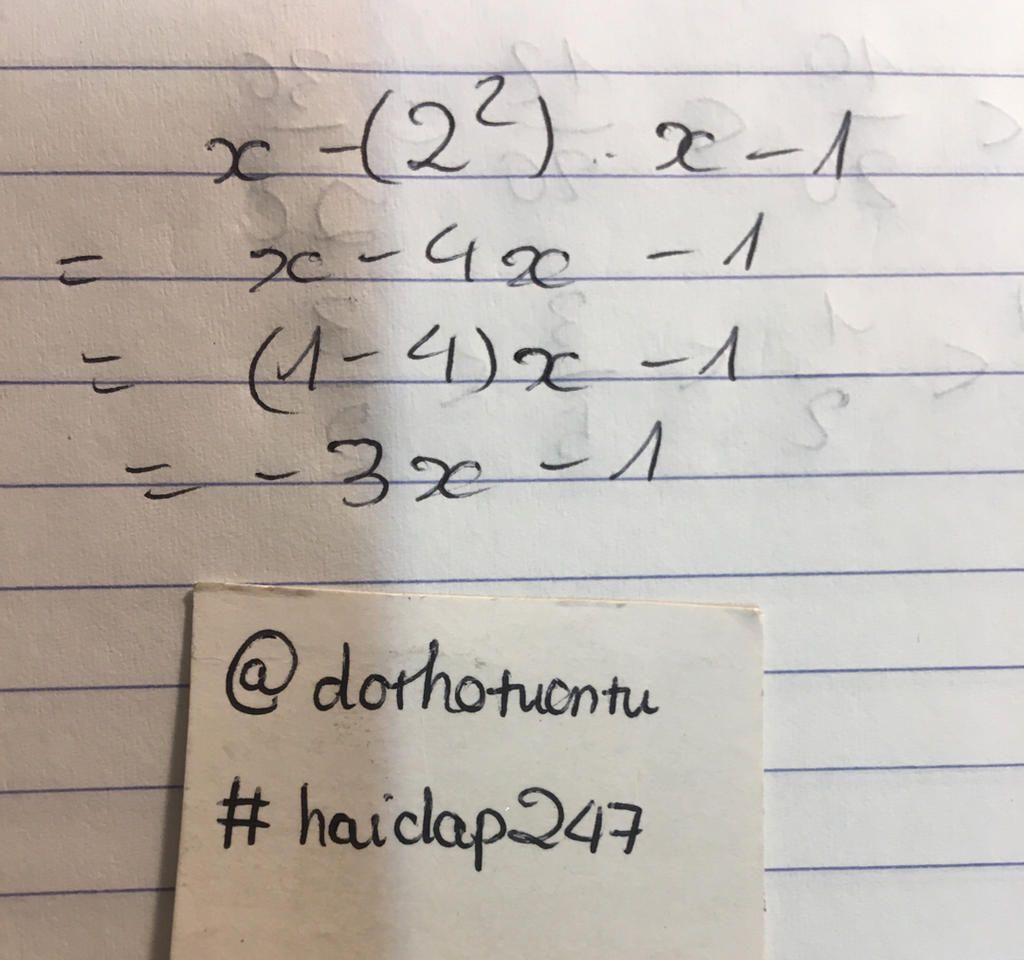 x - (2²) . x - 1
= x - 4x - 1
= (1 - 4)x - 1
= - 3x - 1
@dothotuontu
#haidap247